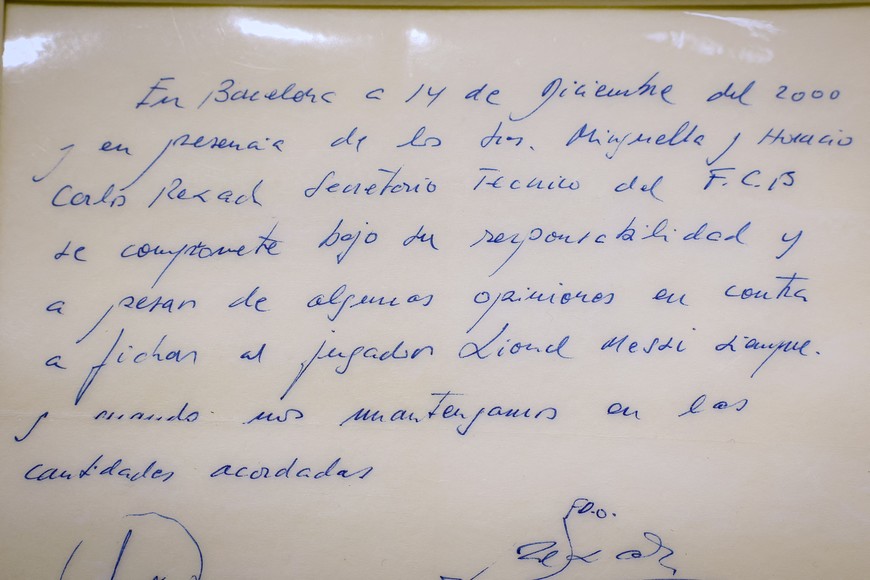 En Barcelona a 14 de Diciembre del 2000
y en presencia de los Srs. Minguella y Horacio
Carles Rexach Secretario Tecnico del F.C.B
se compromete bajo su responsabilidad y
a pesar de algunas opiniones en contra
a fichar al jugador Lionel Messi siempre.
y cuando nos mantengamos en las
cantidades acordadas
FDO.
Rexach